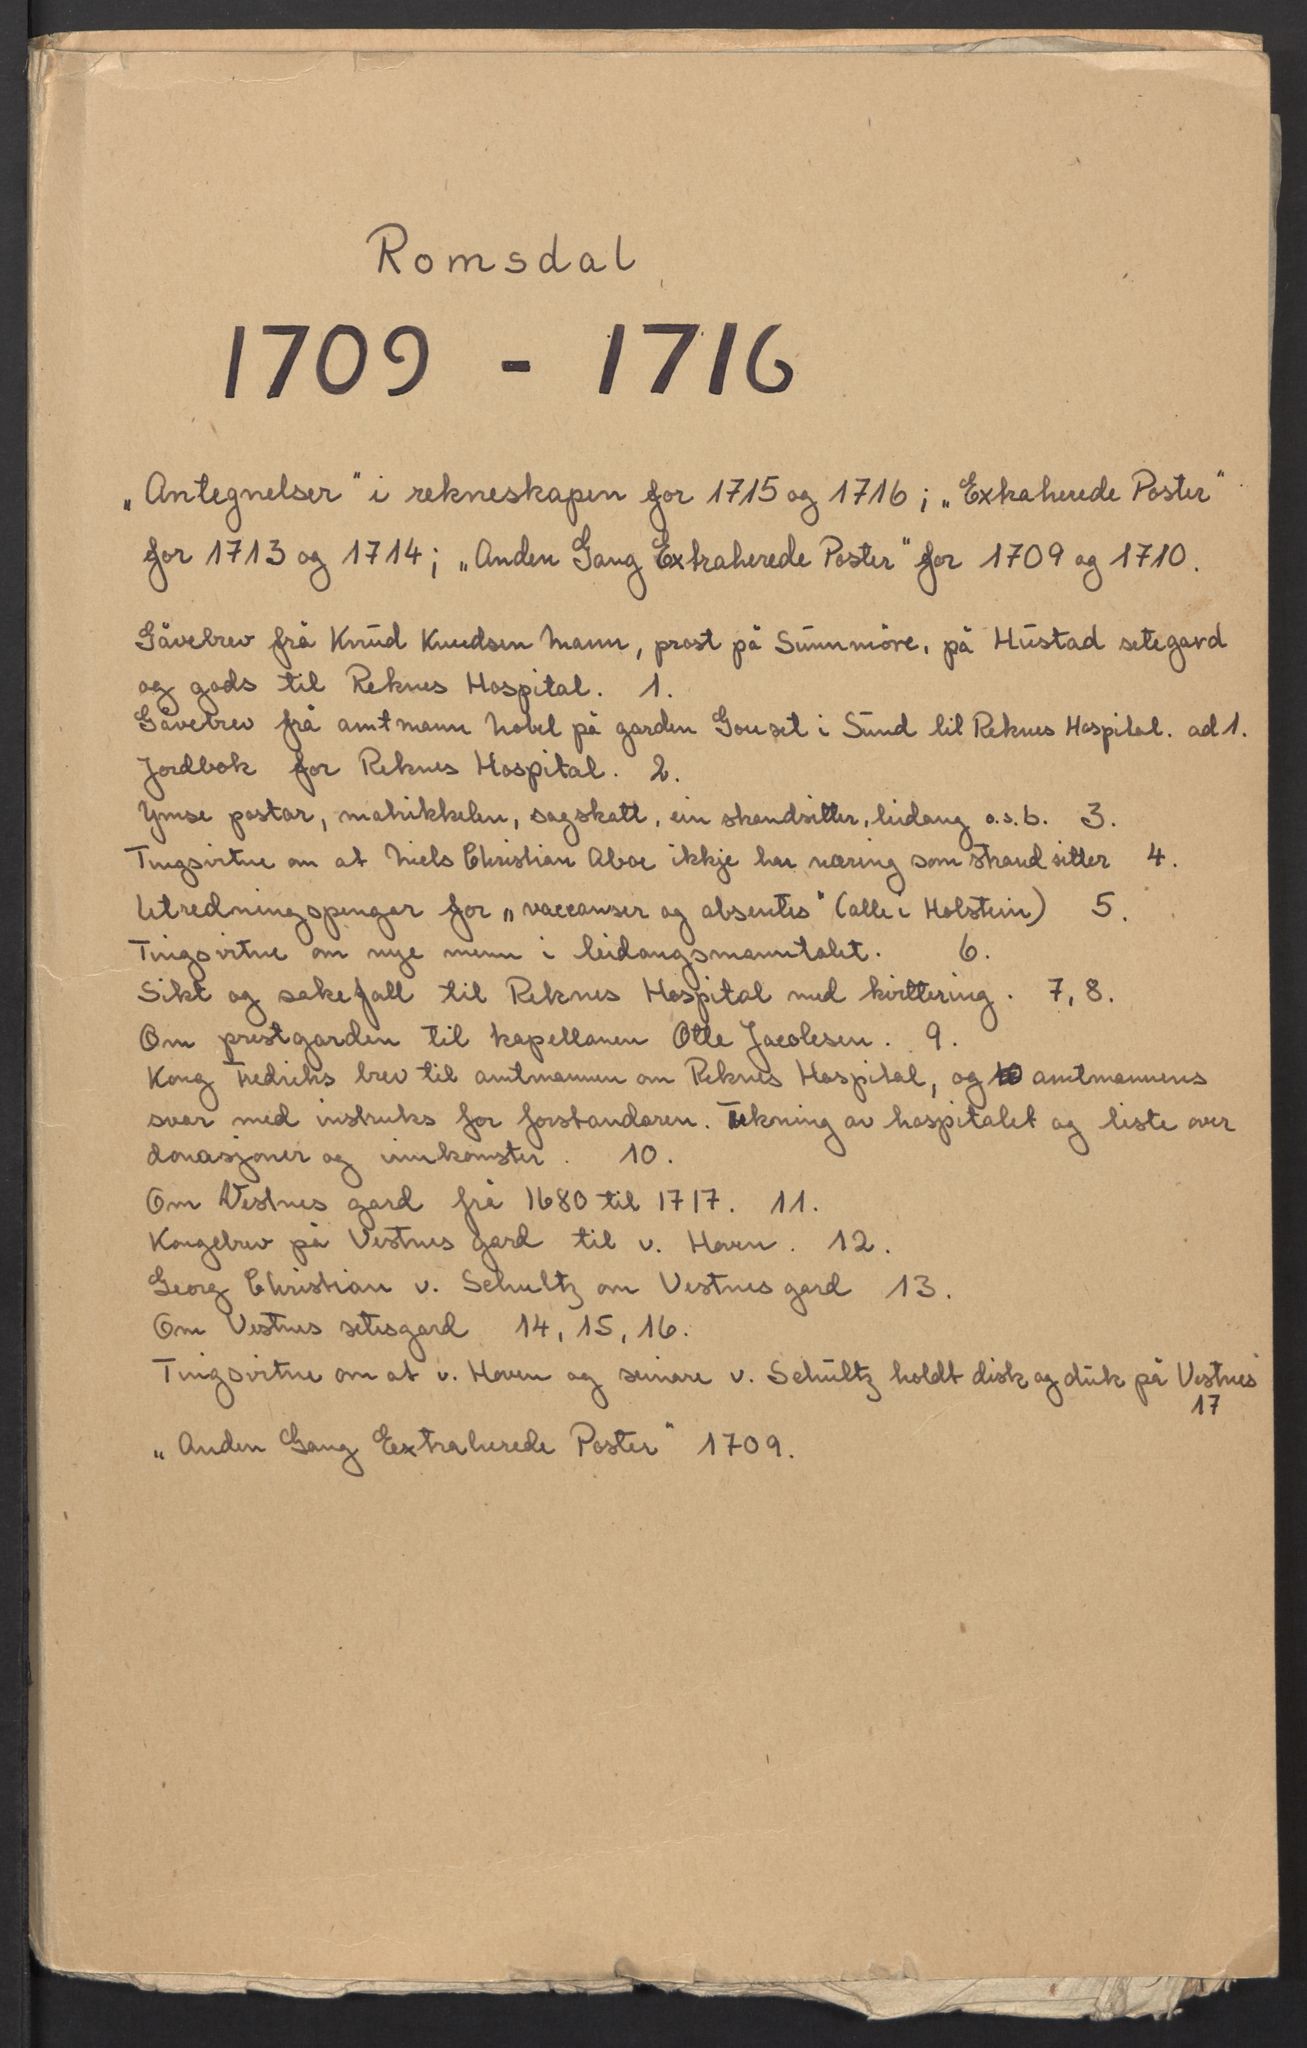 Romsdal
1709 - 1716
„Antegnelser" i rekneskapen for 1715 og 1716; „Extraherede Poster"
for 1713 og 1714; „Anden Gang Extraherede Poster" for 1709 og 1710.
Gåvebrev frå Knud Knudsen Mann, prost på Sunnmöre, på Hustad setegard
og gods til Reknes Hospital. 1.
Gåvebrev frå amtmann Nobel på garden Gouset i Sund til Reknes Hospital. ad 1.
Jordbok for Reknes Hospital. 2.
Ymse postar, matrikkelen, sagskatt, ein strandsitter, leidang o.s.b. 3.
Tingsvitne om at Niels Christian Aboe ikkje har næring som strandsitter 4.
Utredningspengar for „vaccanser og absentes" (alle i Holstein) 5.
Tingsvitne om nye menn i leidangsmanntalet. 6.
Sikt og sakefall til Reknes Hospital med kvittering. 7, 8.
Om prestgarden til kapellanen Otte Jacobsen. 9.
Kong Fredriks brev til amtmannen om Reknes Hospital, og amtmannens
svar med instruks for forstandaren. Tekning av hospitalet og liste over
donasjoner og innkomster. 10.
Om Vestnes gard frå 1680 til 1717. 11.
Kongebrev på Vestnes gard til v. Haven. 12.
Georg Christian v. Schultz om Vestnes gard 13.
Om Vestnes setesgard 14, 15, 16.
Tingsvitne om at v. Haven og seinare v. Schultz holdt disk og duk på Vestnes
17
„Anden Gang Eextraherede Poster" 1709.